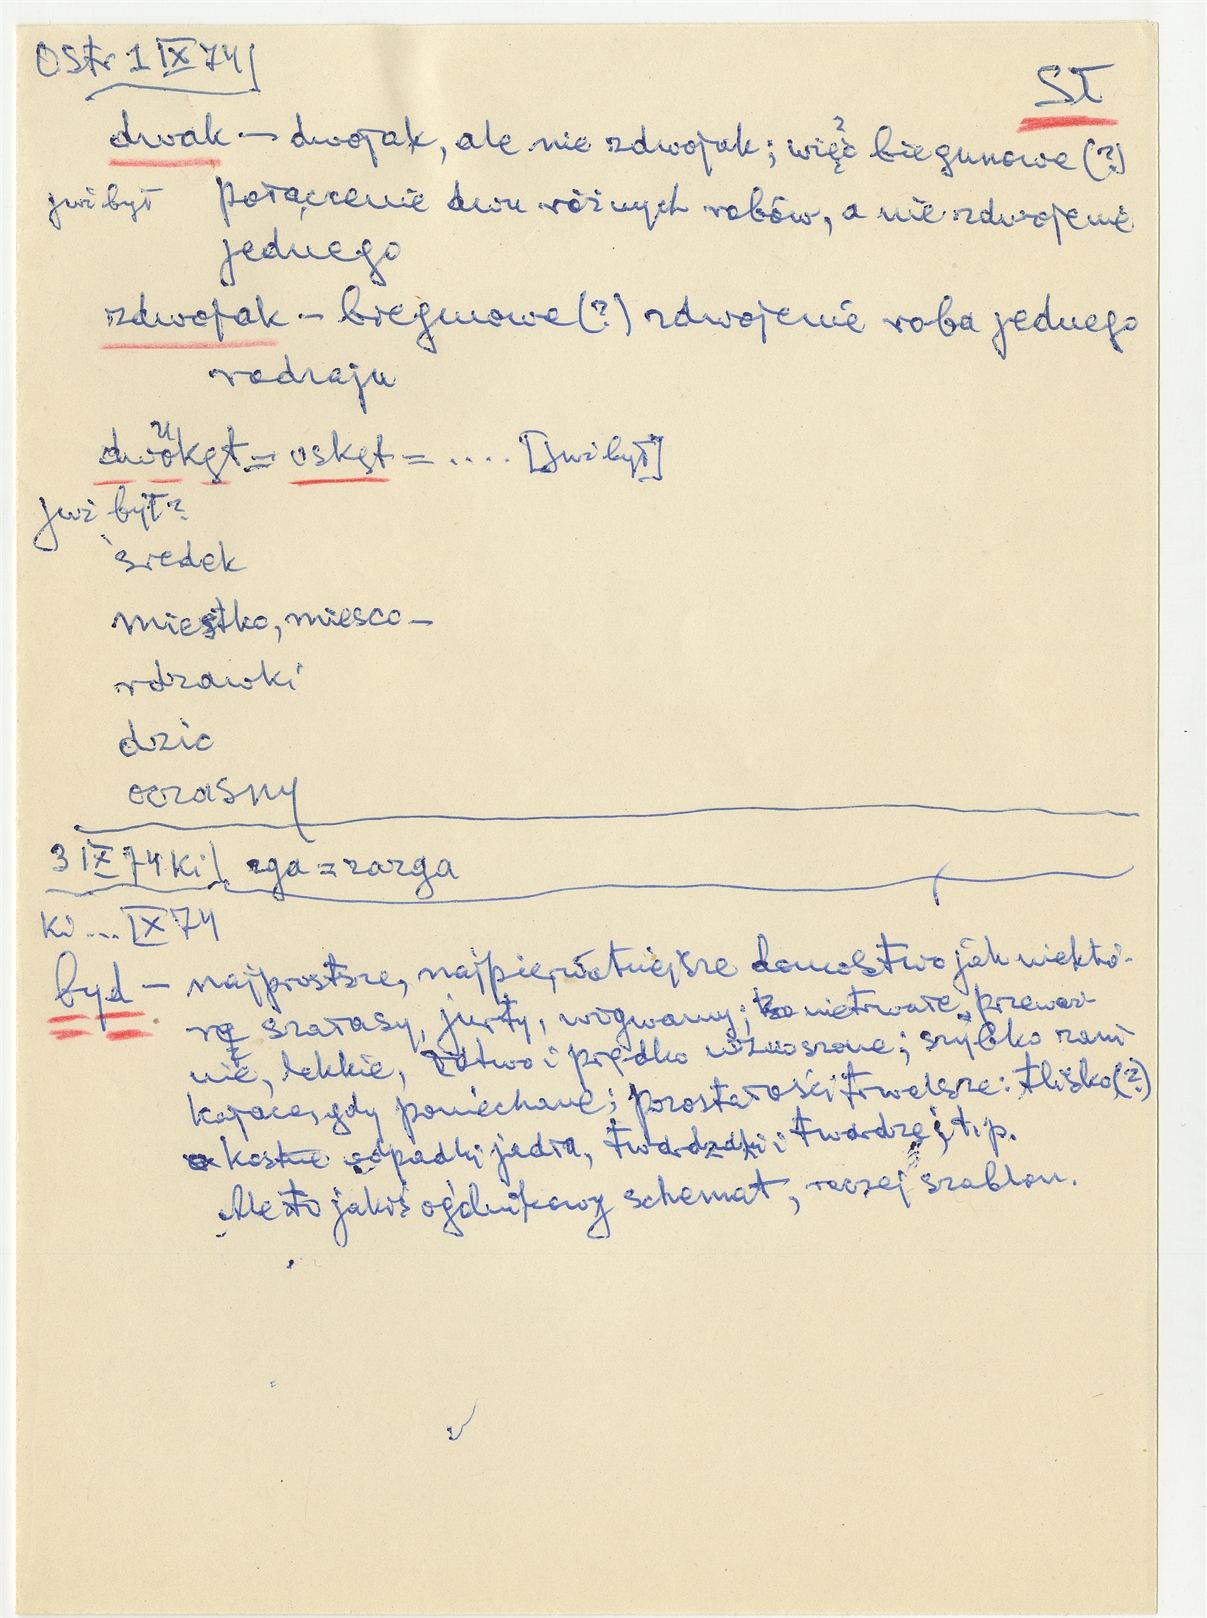 Ostr 1 IX 74
SŁ
dwak — dwojak, ale nie zdwojak; więc biegunowe (?)
już był połączenie dwu różnych robów, a nie zdwojenie
jednego
zdwojak — biegunowe (?) zdwojenie roba jednego
rodzaju
dwukęt = oskęt = .... [już był]
już był?
średek
miestko, miesco —
rdzawki
dzic
oczasny
3 IX 74 Ki zga = zazga
Ki ... IX 74
byd — najprostsze, najpierwotniejsze domostwo jak niektó-
re szałasy, jurty, wigwamy; nietrwałe, przeważ-
nie, lekkie, łatwo i prędko wznoszone; szybko zani-
kające, gdy poniechane; pozostałości trwalsze: tlisko (?)
kostne odpadki jadła, twardziaki i twardzee i t.p.
Ale to jakiś ogólnikowy schemat, raczej szablon.